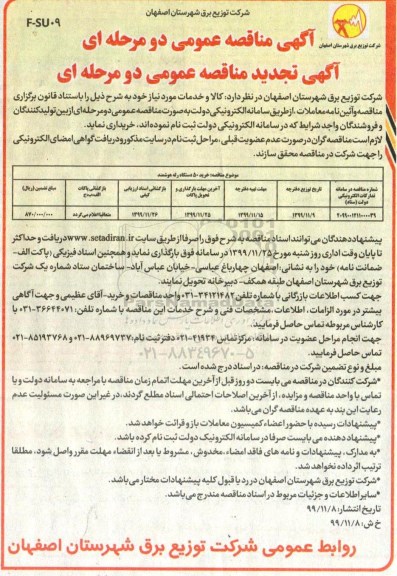 شرکت توزیع برق شهرستان اصفهان
F-SU09
شرکت توزیع برق شهرستان اصفهان
آگهی مناقصه عمومی دو مرحله ای
آگهی تجدید مناقصه عمومی دو مرحله ای
شرکت توزیع برق شهرستان اصفهان در نظر دارد: کالا و خدمات مورد نیاز خود به شرح ذیل را باستناد قانون برگزاری
مناقصه و آئین نامه معاملات، از طریق سامانه الکترونیکی دولت به صورت مناقصه عمومی دو مرحله ای از بین تولیدکنندگان
و فروشندگان واجد شرایط که در سامانه الکترونیکی دولت ثبت نام نموده اند، خریداری نماید.
لازم است مناقصه گران در صورت عدم عضویت قبلی، مراحل ثبت نام در سایت مذکور و دریافت گواهی امضای الکترونیکی
را جهت شرکت در مناقصه محقق سازند.
موضوع مناقصه: خرید ۵۰ دستگاه رله هوشمند
شماره مناقصه در سامانه تدارکات الکترونیکی دولت (ستاد) | تاریخ توزیع دفترچه | مهلت تهیه دفترچه | آخرین مهلت بارگذاری و تحویل پاکات | بازگشائی اسناد ارزیابی کیفی | بازگشائی پاکات الف-ب-ج | مبلغ تضمین (ریال)
۲۰۹۹۰۰۱۲۱۱۰۰۰۰۳۹ | ۱۳۹۹/۱۱/۹ | ۱۳۹۹/۱۱/۱۵ | ۱۳۹۹/۱۱/۲۵ | ۱۳۹۹/۱۱/۲۶ | متعاقبا اعلام می گردد | ۸۷۰/۰۰۰/۰۰۰
پیشنهاد دهندگان می توانند اسناد مناقصه به شرح فوق را صرفا از طریق سایت www.setadiran.ir دریافت و حداکثر
تا پایان وقت اداری روز شنبه مورخ ۱۳۹۹/۱۱/۲۵ در سامانه فوق بارگذاری نماید و همچنین اسناد فیزیکی (پاکت الف-
ضمانت نامه) خود را به نشانی: اصفهان چهارباغ عباسی- خیابان عباس آباد- ساختمان ستاد شماره یک شرکت
توزیع برق شهرستان اصفهان طبقه همکف- دبیرخانه تحویل نمایند.
جهت کسب اطلاعات بازرگانی با شماره تلفن ۳۴۱۲۱۴۸۲-۰۳۱ واحد مناقصات و خرید- آقای عظیمی و جهت آگاهی
بیشتر در مورد الزامات، اطلاعات، مشخصات فنی و شرح خدمات این مناقصه با شماره تلفن: ۳۶۶۴۴۰۷۱-۰۳۱ با
کارشناس مربوطه تماس حاصل فرمایید.
جهت انجام مراحل عضویت در سامانه، مرکز تماس ۴۱۹۳۴-۰۲۱ دفتر ثبت نام ۸۸۹۶۹۷۳۷-۰۲۱ و ۸۵۱۹۳۷۶۸-۰۲۱
تماس حاصل فرمایید.
مبلغ و نوع تضمین شرکت در مناقصه: در اسناد درج شده است.
*شرکت کنندگان در مناقصه می بایست دو روز قبل از آخرین مهلت اتمام زمان مناقصه با مراجعه به سامانه دولت و یا
تماس با واحد مناقصه و مزایده، از آخرین اصلاحات احتمالی اسناد مطلع گردند، در غیر این صورت مسئولیت عدم
رعایت این بند به عهده مناقصه گران می باشد.
*پیشنهادات رسیده با حضور اعضاء کمیسیون معاملات باز و قرائت خواهد شد.
*پیشنهاد دهنده می بایست صرفا در سامانه الکترونیک دولت ثبت نام کرده باشد.
*به مدارک، پیشنهادات و نامه های فاقد امضاء، مخدوش، مشروط یا بعد از انقضاء مهلت مقرر واصل شود، مطلقا
ترتیب اثر داده نخواهد شد.
*شرکت توزیع برق شهرستان اصفهان در رد یا قبول کلیه پیشنهادات مختار می باشد.
*سایر اطلاعات و جزییات مربوط در اسناد مناقصه مندرج می باشد.
تاریخ انتشار: ۹۹/۱۱/۸
خ ش: ۹۹/۱۱/۸
روابط عمومی شرکت توزیع برق شهرستان اصفهان
ParsNamadData
۰۲۱-۸۸۳۴۹۶۷۰-۵